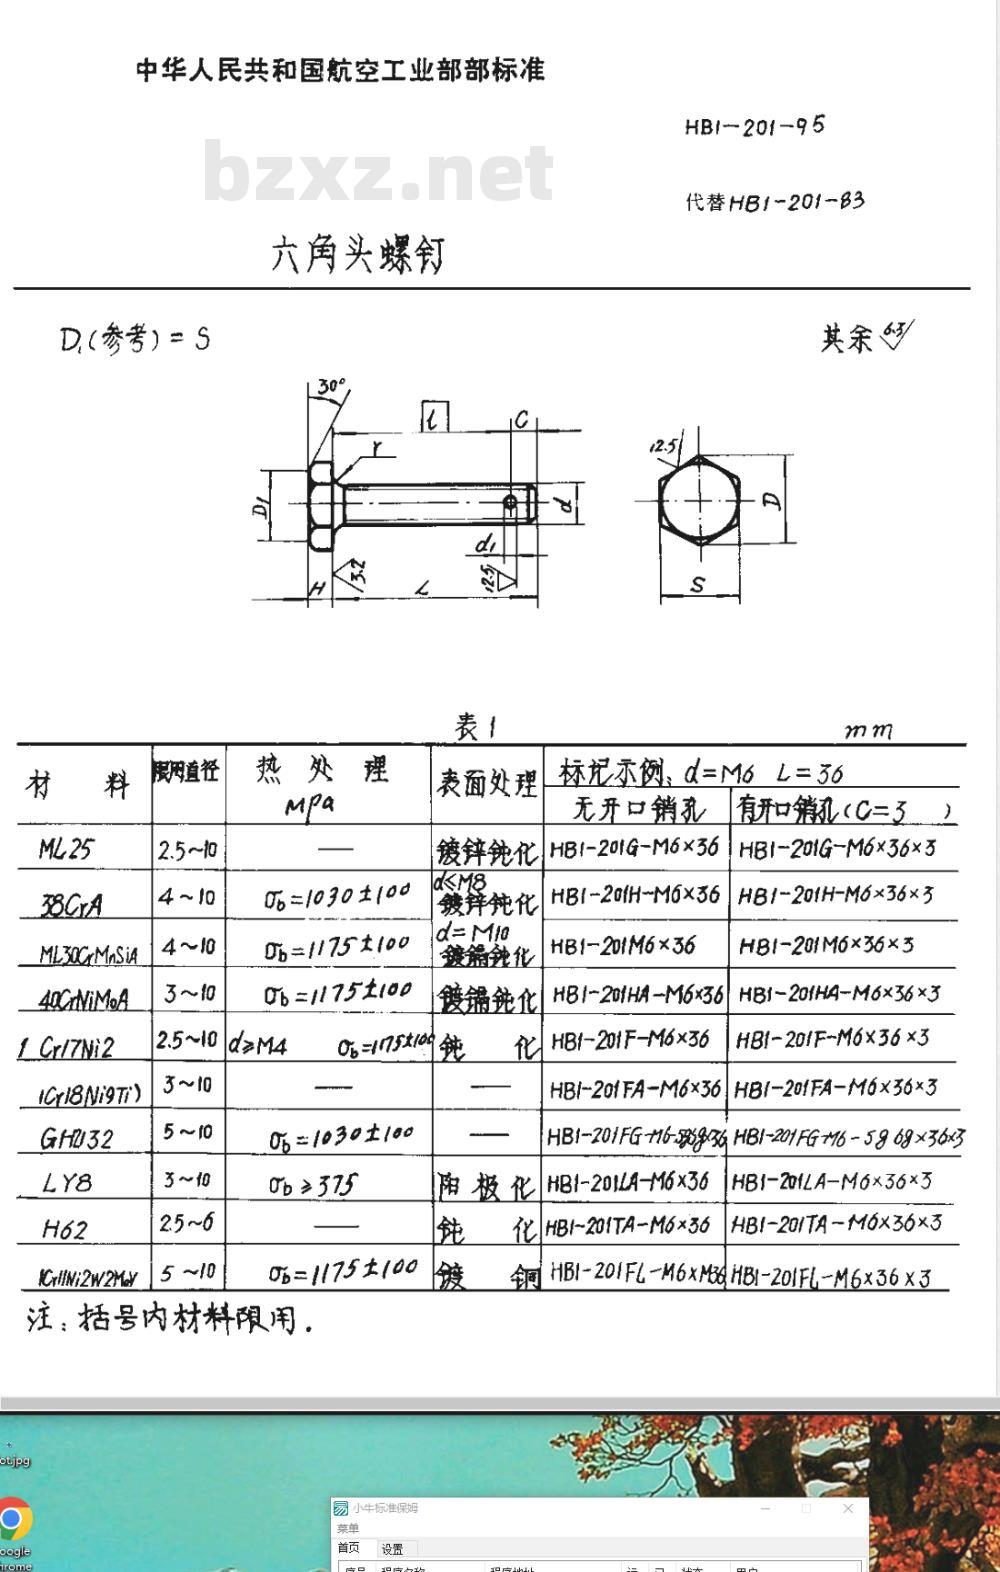 中华人民共和国航空工业部部标准
HB1-201-95
bzxz.net
代替HB1-201-83
六角头螺钉
D₁(参考)=S
其余 6.3
30°
l
C
r
12.5
D₁
d
D
d₁
3.2
12.5
H
L
S
表1
mm
材 料 使用直径 热处理 MPa 表面处理 标记示例: d=M6 L=36
无开口销孔 有开口销孔(C=3)
ML25 2.5~10 — 镀锌钝化 HB1-201G-M6×36 HB1-201G-M6×36×3
38CrA 4~10 σb=1030±100 d≤M8 镀锌钝化 HB1-201H-M6×36 HB1-201H-M6×36×3
ML30CrMnSiA 4~10 σb=1175±100 d=M10 镀镉钝化 HB1-201M6×36 HB1-201M6×36×3
40CrNiMoA 3~10 σb=1175±100 镀镉钝化 HB1-201HA-M6×36 HB1-201HA-M6×36×3
1Cr17Ni2 2.5~10 d≥M4 σb=1175±100 钝 化 HB1-201F-M6×36 HB1-201F-M6×36×3
(1Cr18Ni9Ti) 3~10 — — HB1-201FA-M6×36 HB1-201FA-M6×36×3
GH2132 5~10 σb=1030±100 — HB1-201FG-M6- HB1-201FG-M6-5g6g×36×3
LY8 3~10 σb≥375 阳极化 HB1-201LA-M6×36 HB1-201LA-M6×36×3
H62 2.5~6 — 钝 化 HB1-201TA-M6×36 HB1-201TA-M6×36×3
1Cr11Ni2W2MoV 5~10 σb=1175±100 镀 铜 HB1-201FL-M6×M36 HB1-201FL-M6×36×3
注:括号内材料限用.
ot.jpg
小牛标准保姆
菜单
oogle
hrome
首页 设置